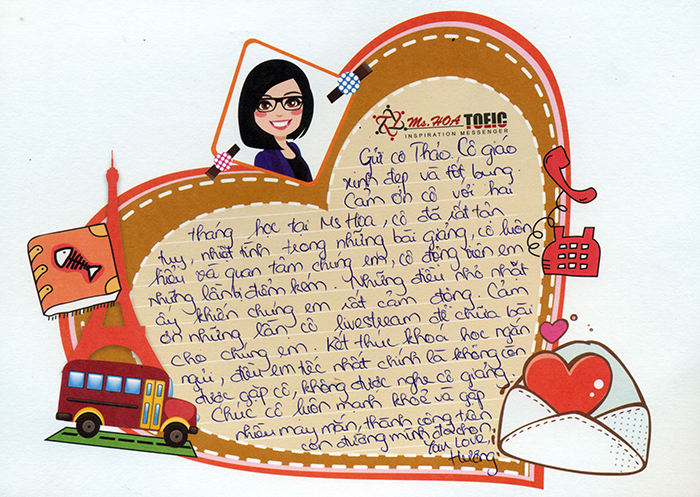 Ms. HOA TOEIC
INSPIRATION MESSENGER
Gửi cô Thảo, Cô giáo
xinh đẹp và tốt bụng
Cảm ơn cô với hai
tháng học tại Ms Hoa, cô đã rất tận
tuỵ, nhiệt tình trong những bài giảng, cô luôn
hiểu và quan tâm chúng em, cô động viên em
những lần điểm kém. Những điều nhỏ nhặt
ấy khiến chúng em rất cảm động. Cảm
ơn những lần cô livestream để chữa bài
cho chúng em. Kết thúc khóa học ngắn
ngủi, điều em tiếc nhất chính là không còn
được gặp cô, không được nghe cô giảng.
Chúc cô luôn mạnh khoẻ và gặp
nhiều may mắn, thành công trên
con đường mình đã chọn.
Love,
Hương